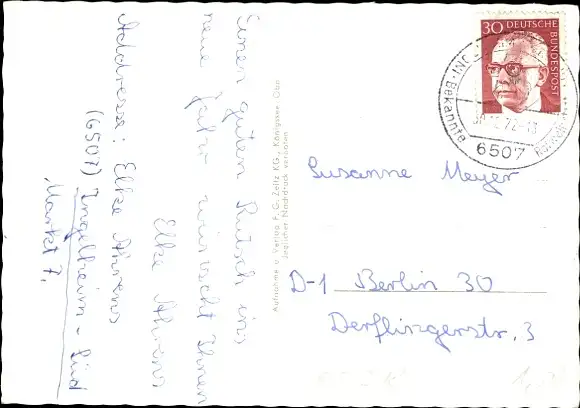 Einen guten Rutsch ins
neue Jahr wünscht Ihnen
Elke Ahrens
Addresse: Elke Ahrens
(6507) Ingelheim-Süd
Markt 7,
Aufnahme u. Verlag F. G. Zeitz KG., Königssee/Obb.
Jeglicher Nachdruck verboten
30 DEUTSCHE
BUNDESPOST
Bekannte
6507
Susanne Meyer
D-1 Berlin 30
Derflingerstr. 3